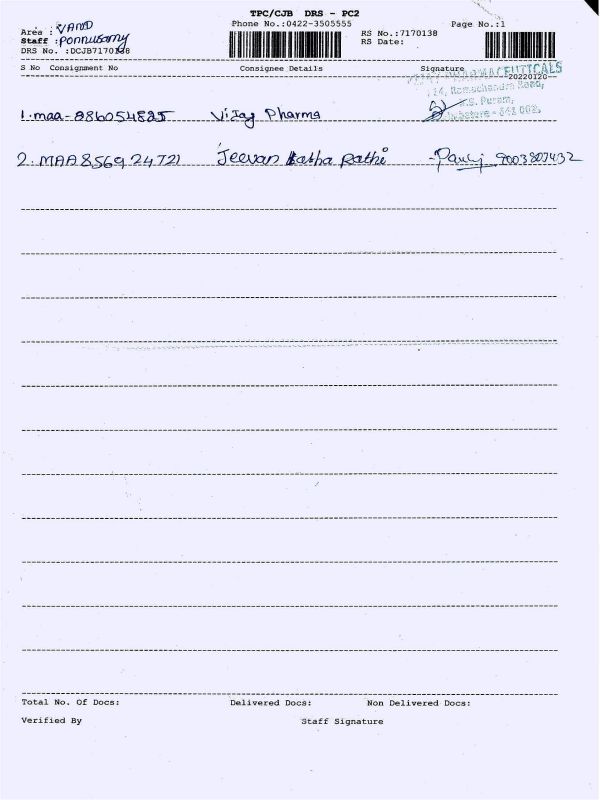 TPC/CJB DRS - PC2
Phone No.:0422-3505555
Page No.:1
Area : VAND
Staff : Ponnusamy
DRS No. :DCJB7170138
RS No.:7170138
RS Date:
S No Consignment No Consignee Details Signature
PHARMACEUTICALS
20220120
24, Ramachandra Road,
R.S. Puram,
Coimbatore - 641 002.
1. maa - 886054825 Vijay Pharma
2. MAA856924721 Jeevan Katha Rathi 9003807432
Total No. Of Docs: Delivered Docs: Non Delivered Docs:
Verified By Staff Signature